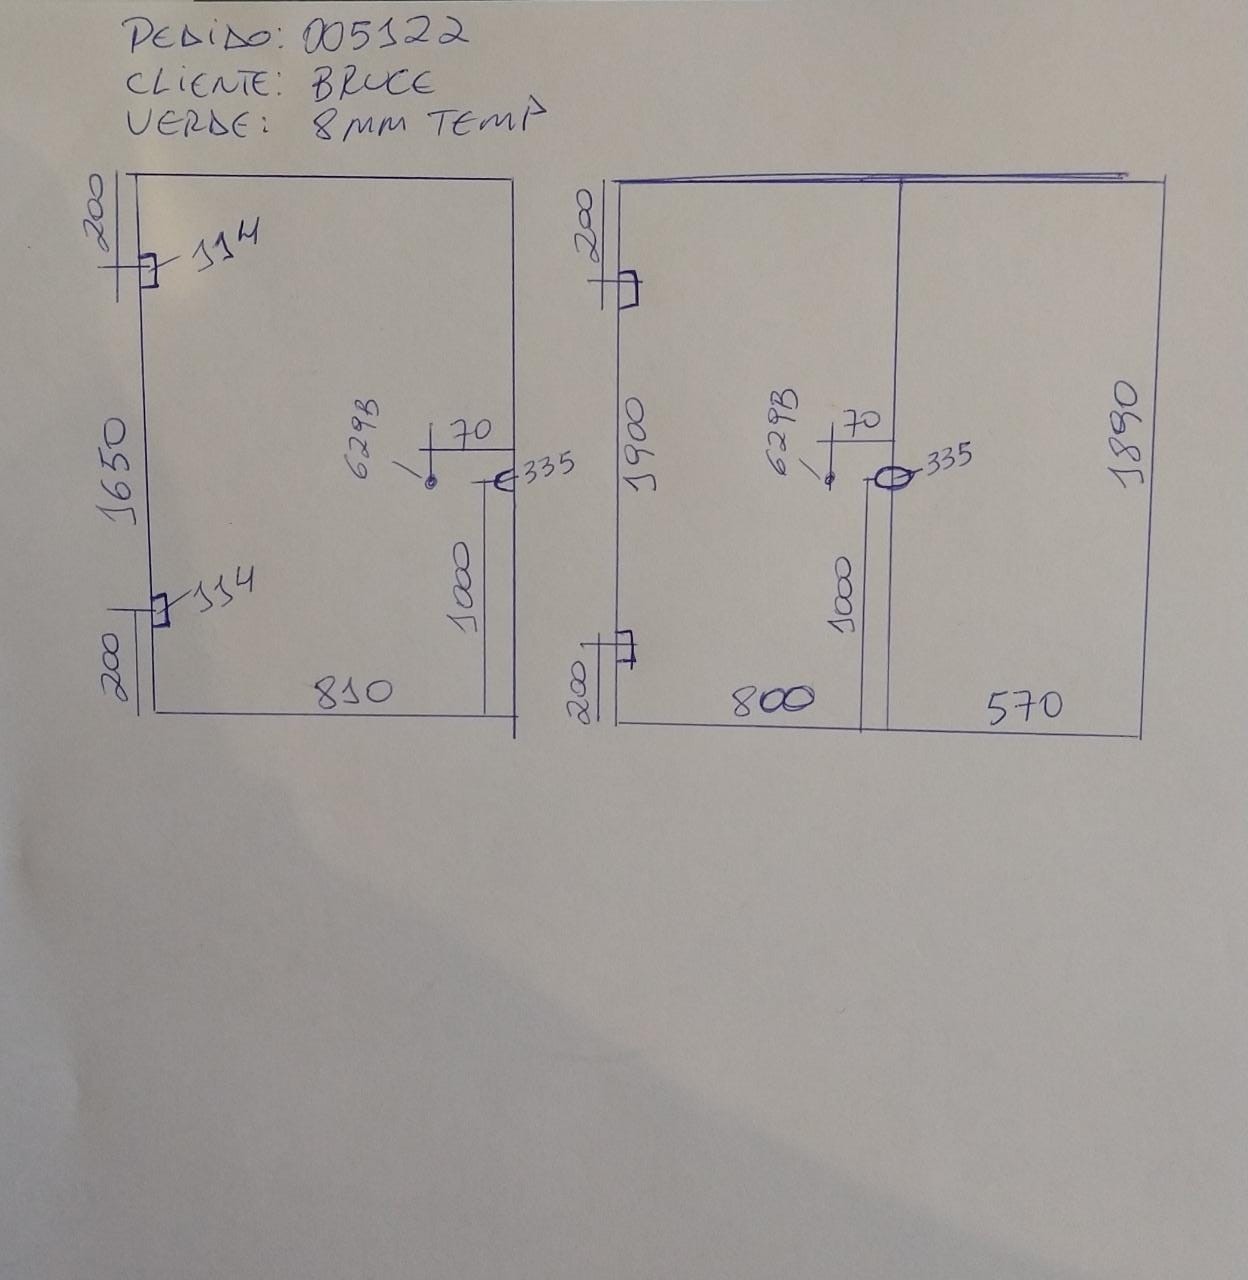 PEDIDO: 005122
CLIENTE: BRUCE
VERDE: 8MM TEMP
200
114
1650
629B
70
335
1000
114
200
810
200
1900
629B
70
335
1000
200
800
1890
570